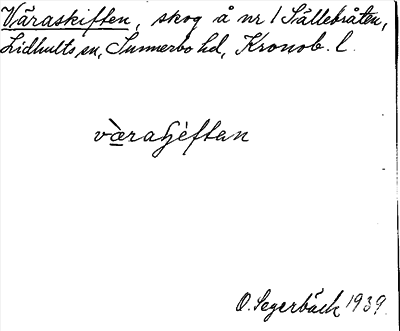 Väraskiften, skog å nr 1 Sällebråten,
Lidhults sn, Sunnerbo hd, Kronob. l.
væ̀raʃéftan
O. Segerbäck 1939.